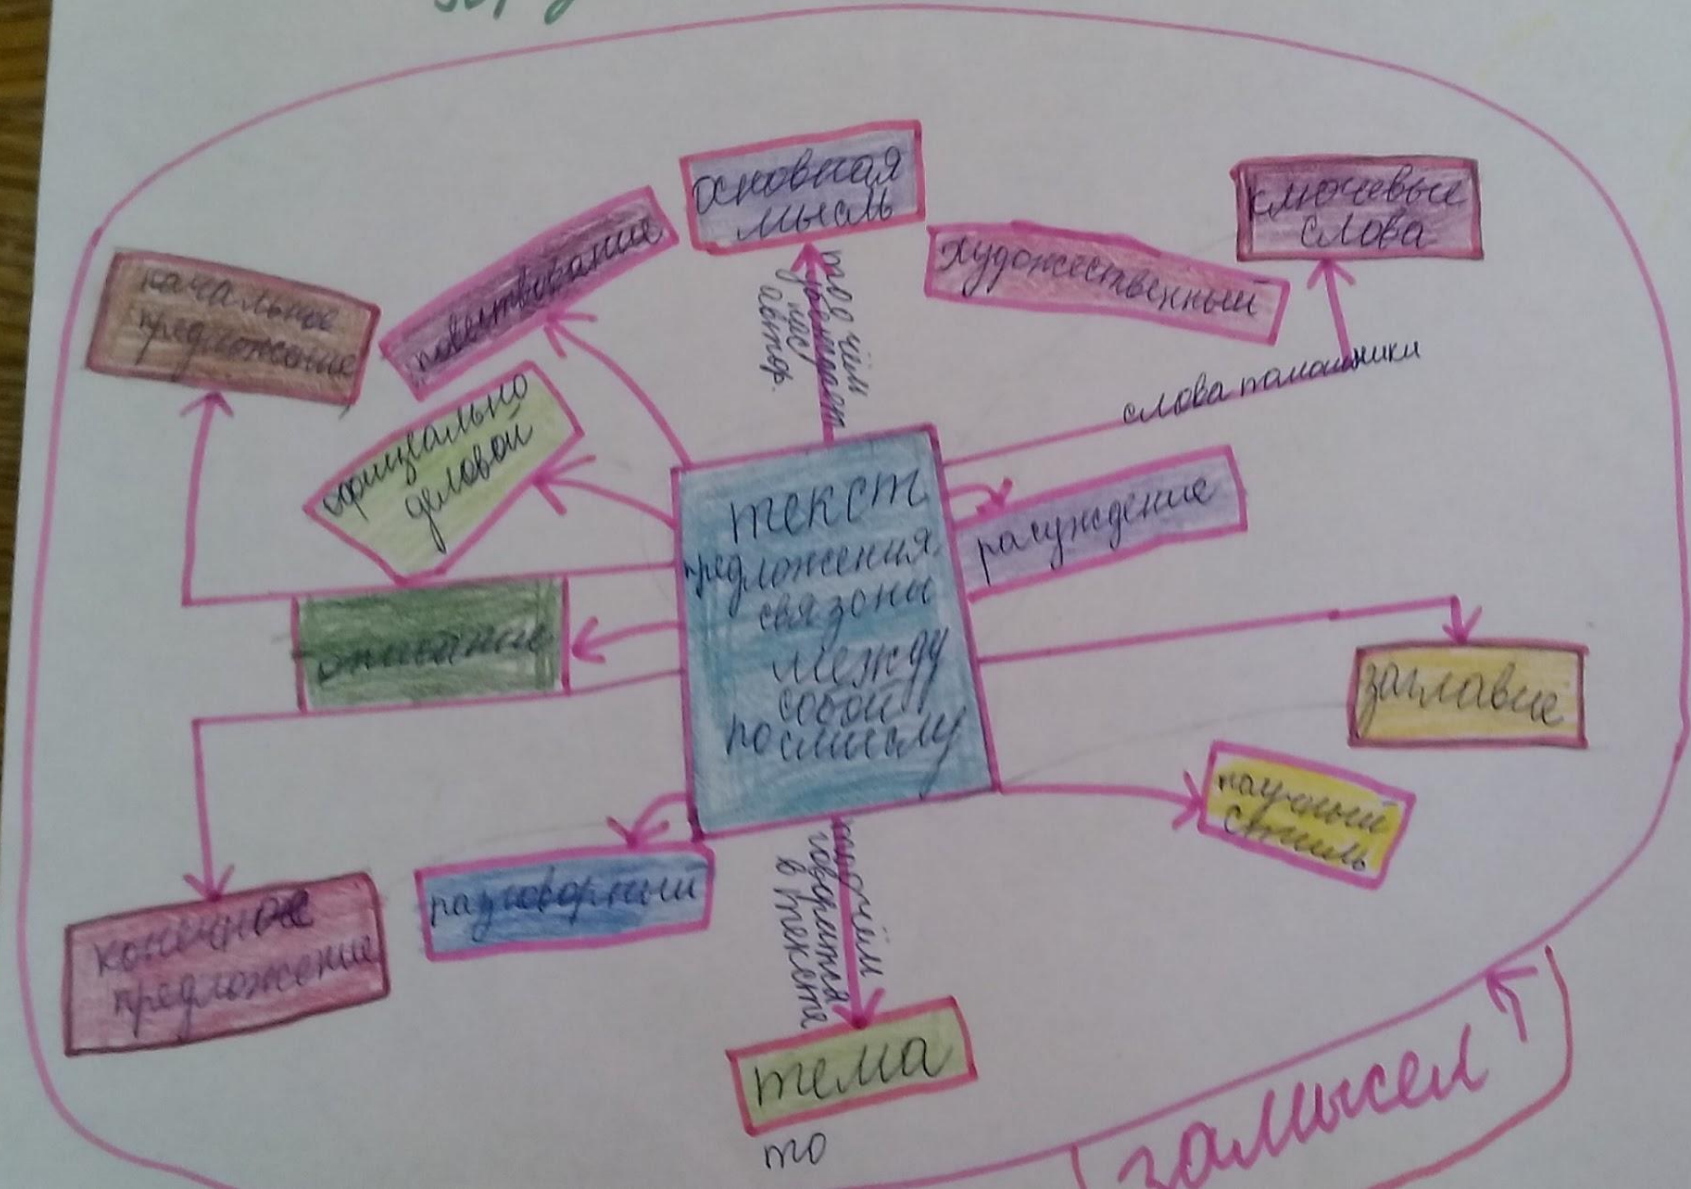 основная
мысль
ключевые
слова
художественный
повествование
начальное
предложение
официально
деловой
то о чём
автор.
слова помошники
текст
предложения
связоны
между
собой
по смыслу
рассуждение
описание
заглавие
научный
стиль
разговорный
конечное
предложение
то о чём
говорится
в тексте
тема
то
замысел